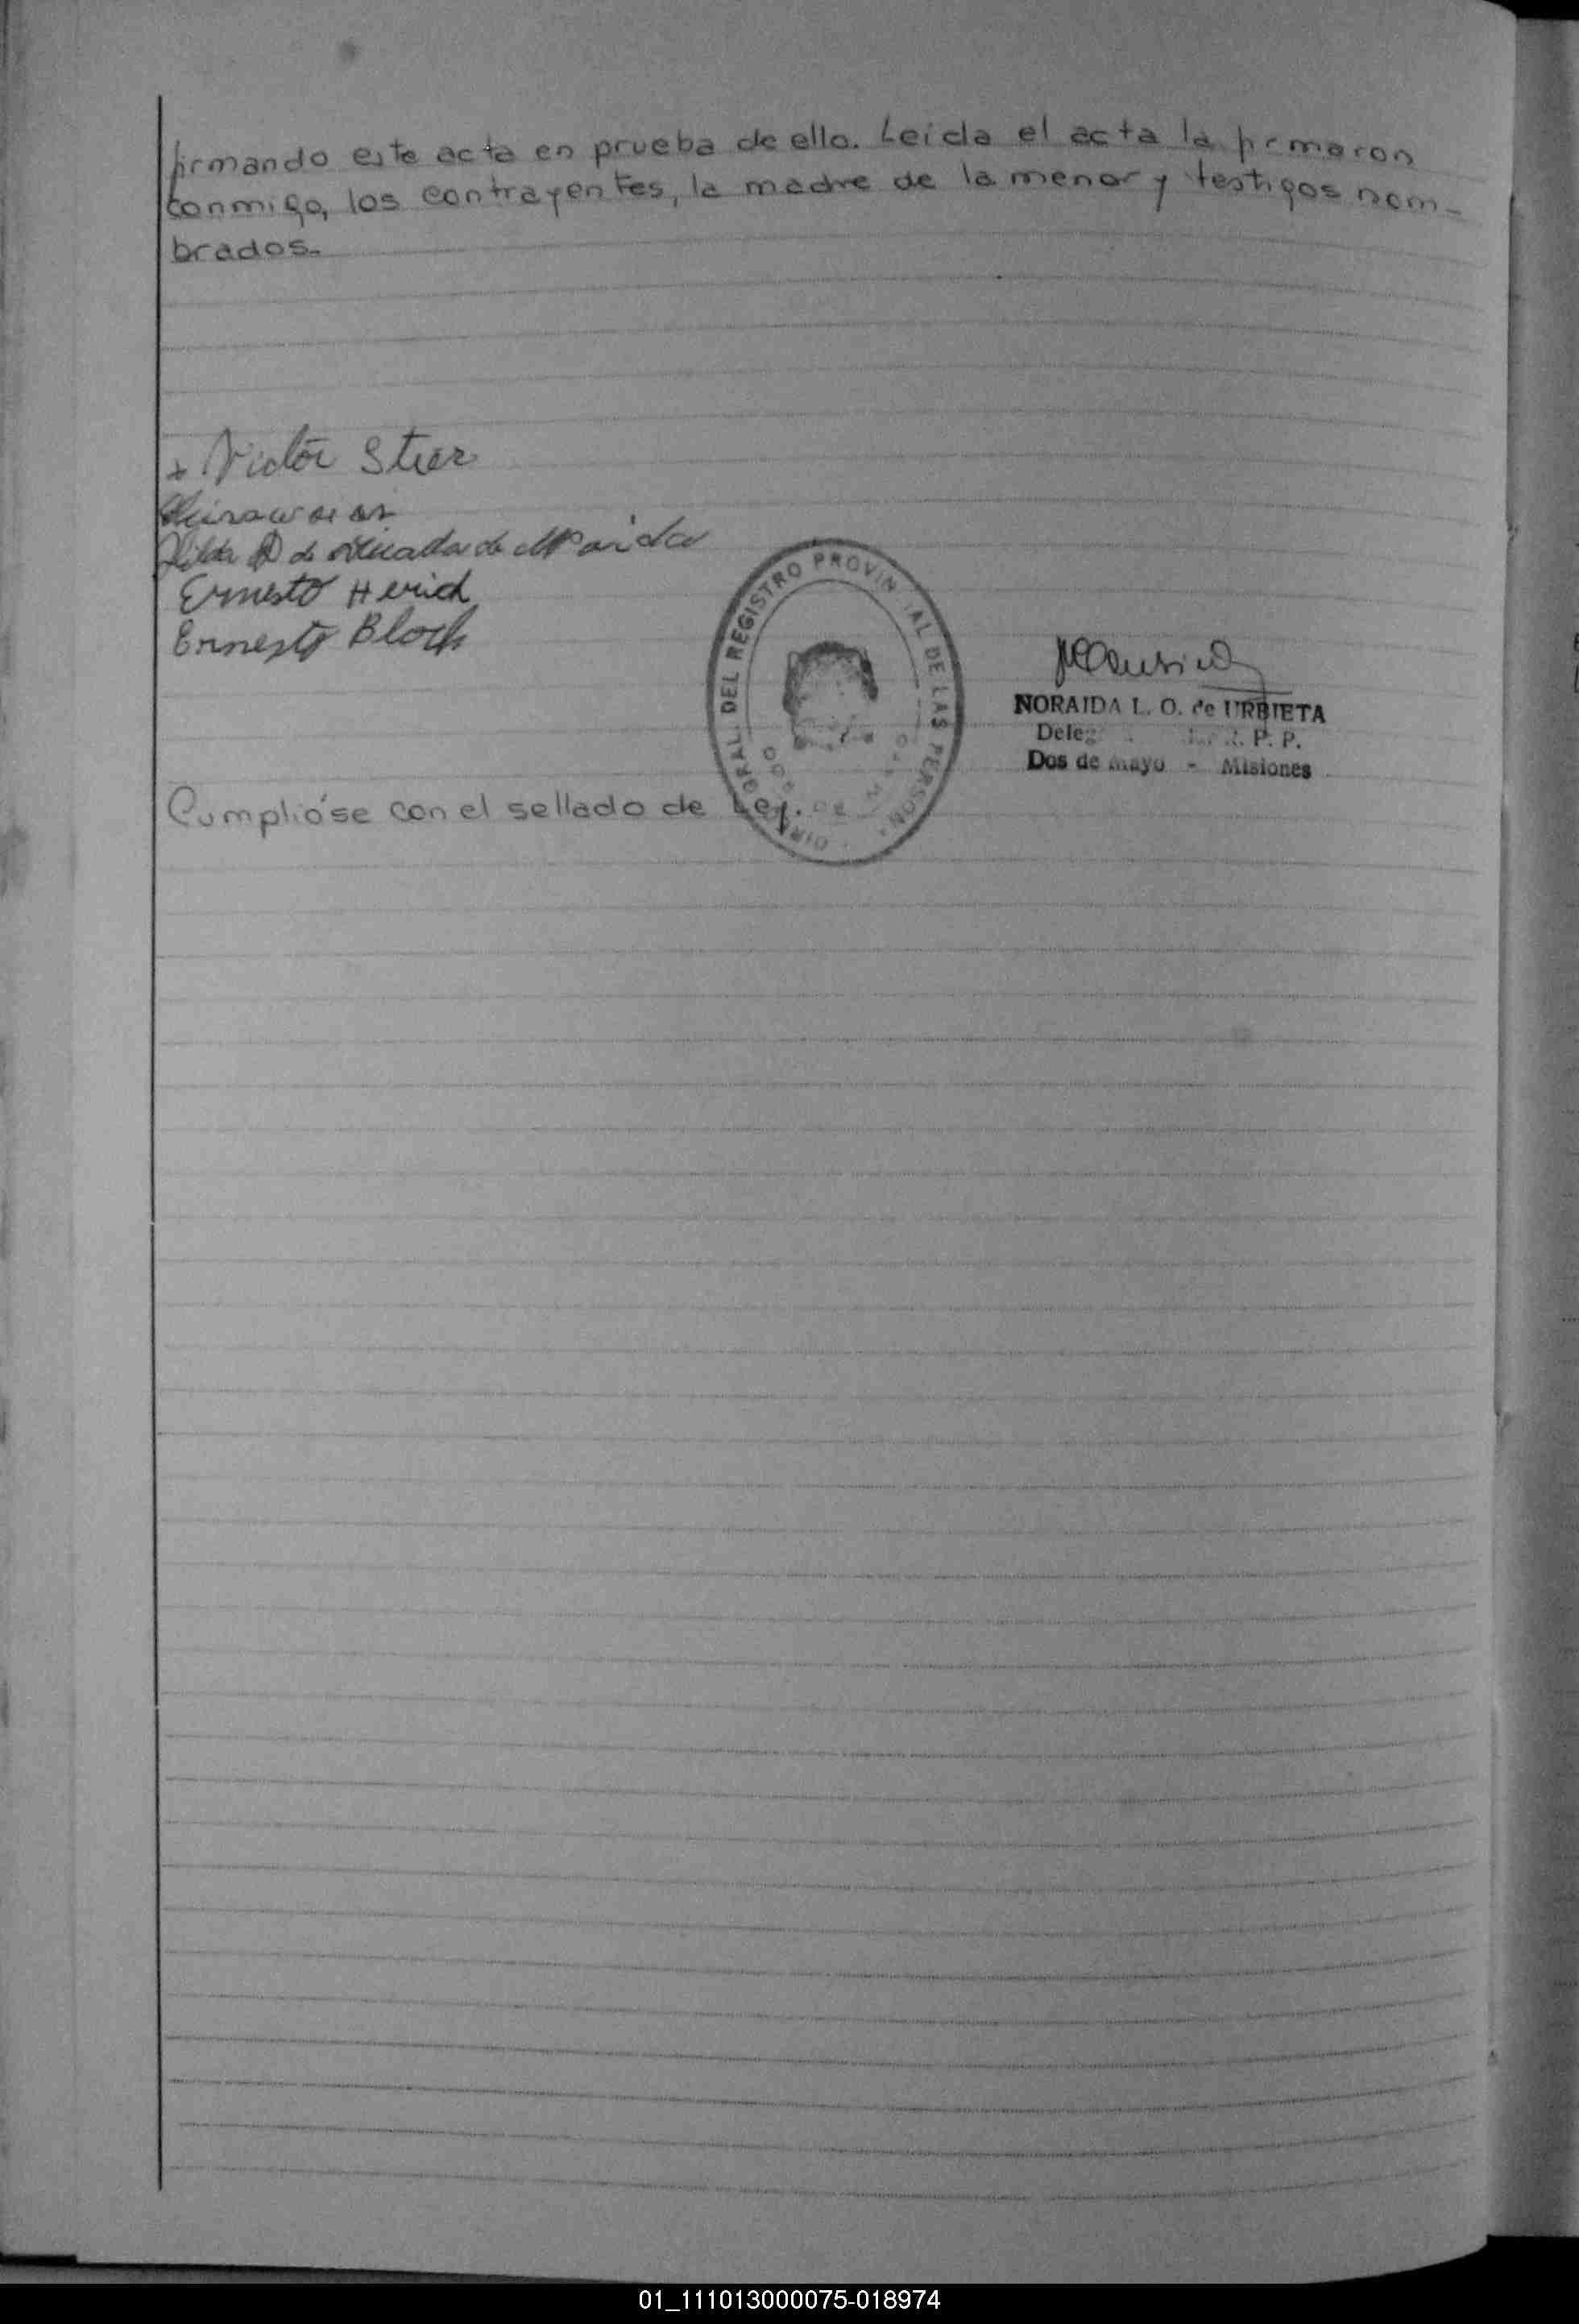 firmando este acta en prueba de ello. Leida el acta la firmaron
conmigo, los contrayentes, la madre de la menor y testigos nom-
brados.
Victor Stier
Ernesto Herich
Ernesto Bloch
DIR. GRAL. DEL REGISTRO PROVINCIAL DE LAS PERSON.
NORAIDA L. O. de URBIETA
P. P.
Dos de mayo - Misiones
Cumplióse con el sellado de Ley.
01_111013000075-018974